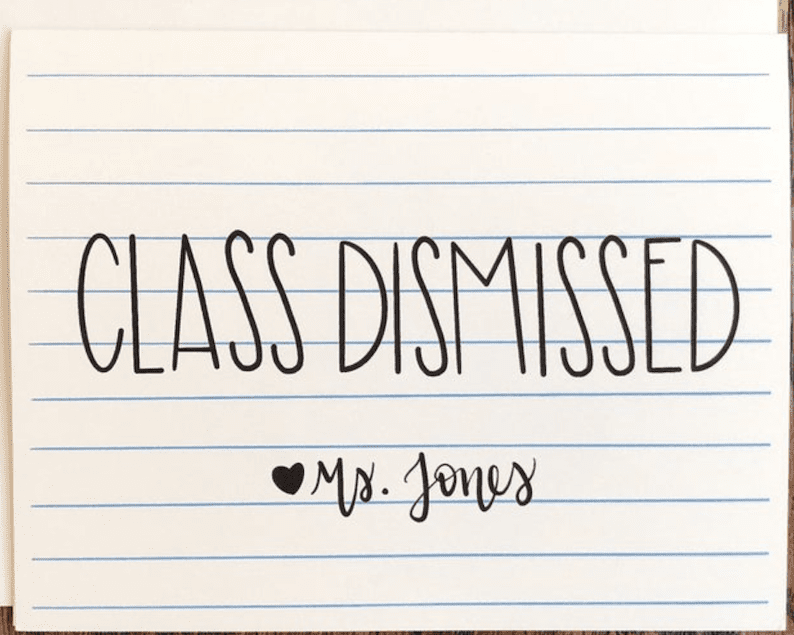 CLASS DISMISSED
♥Ms. Jones